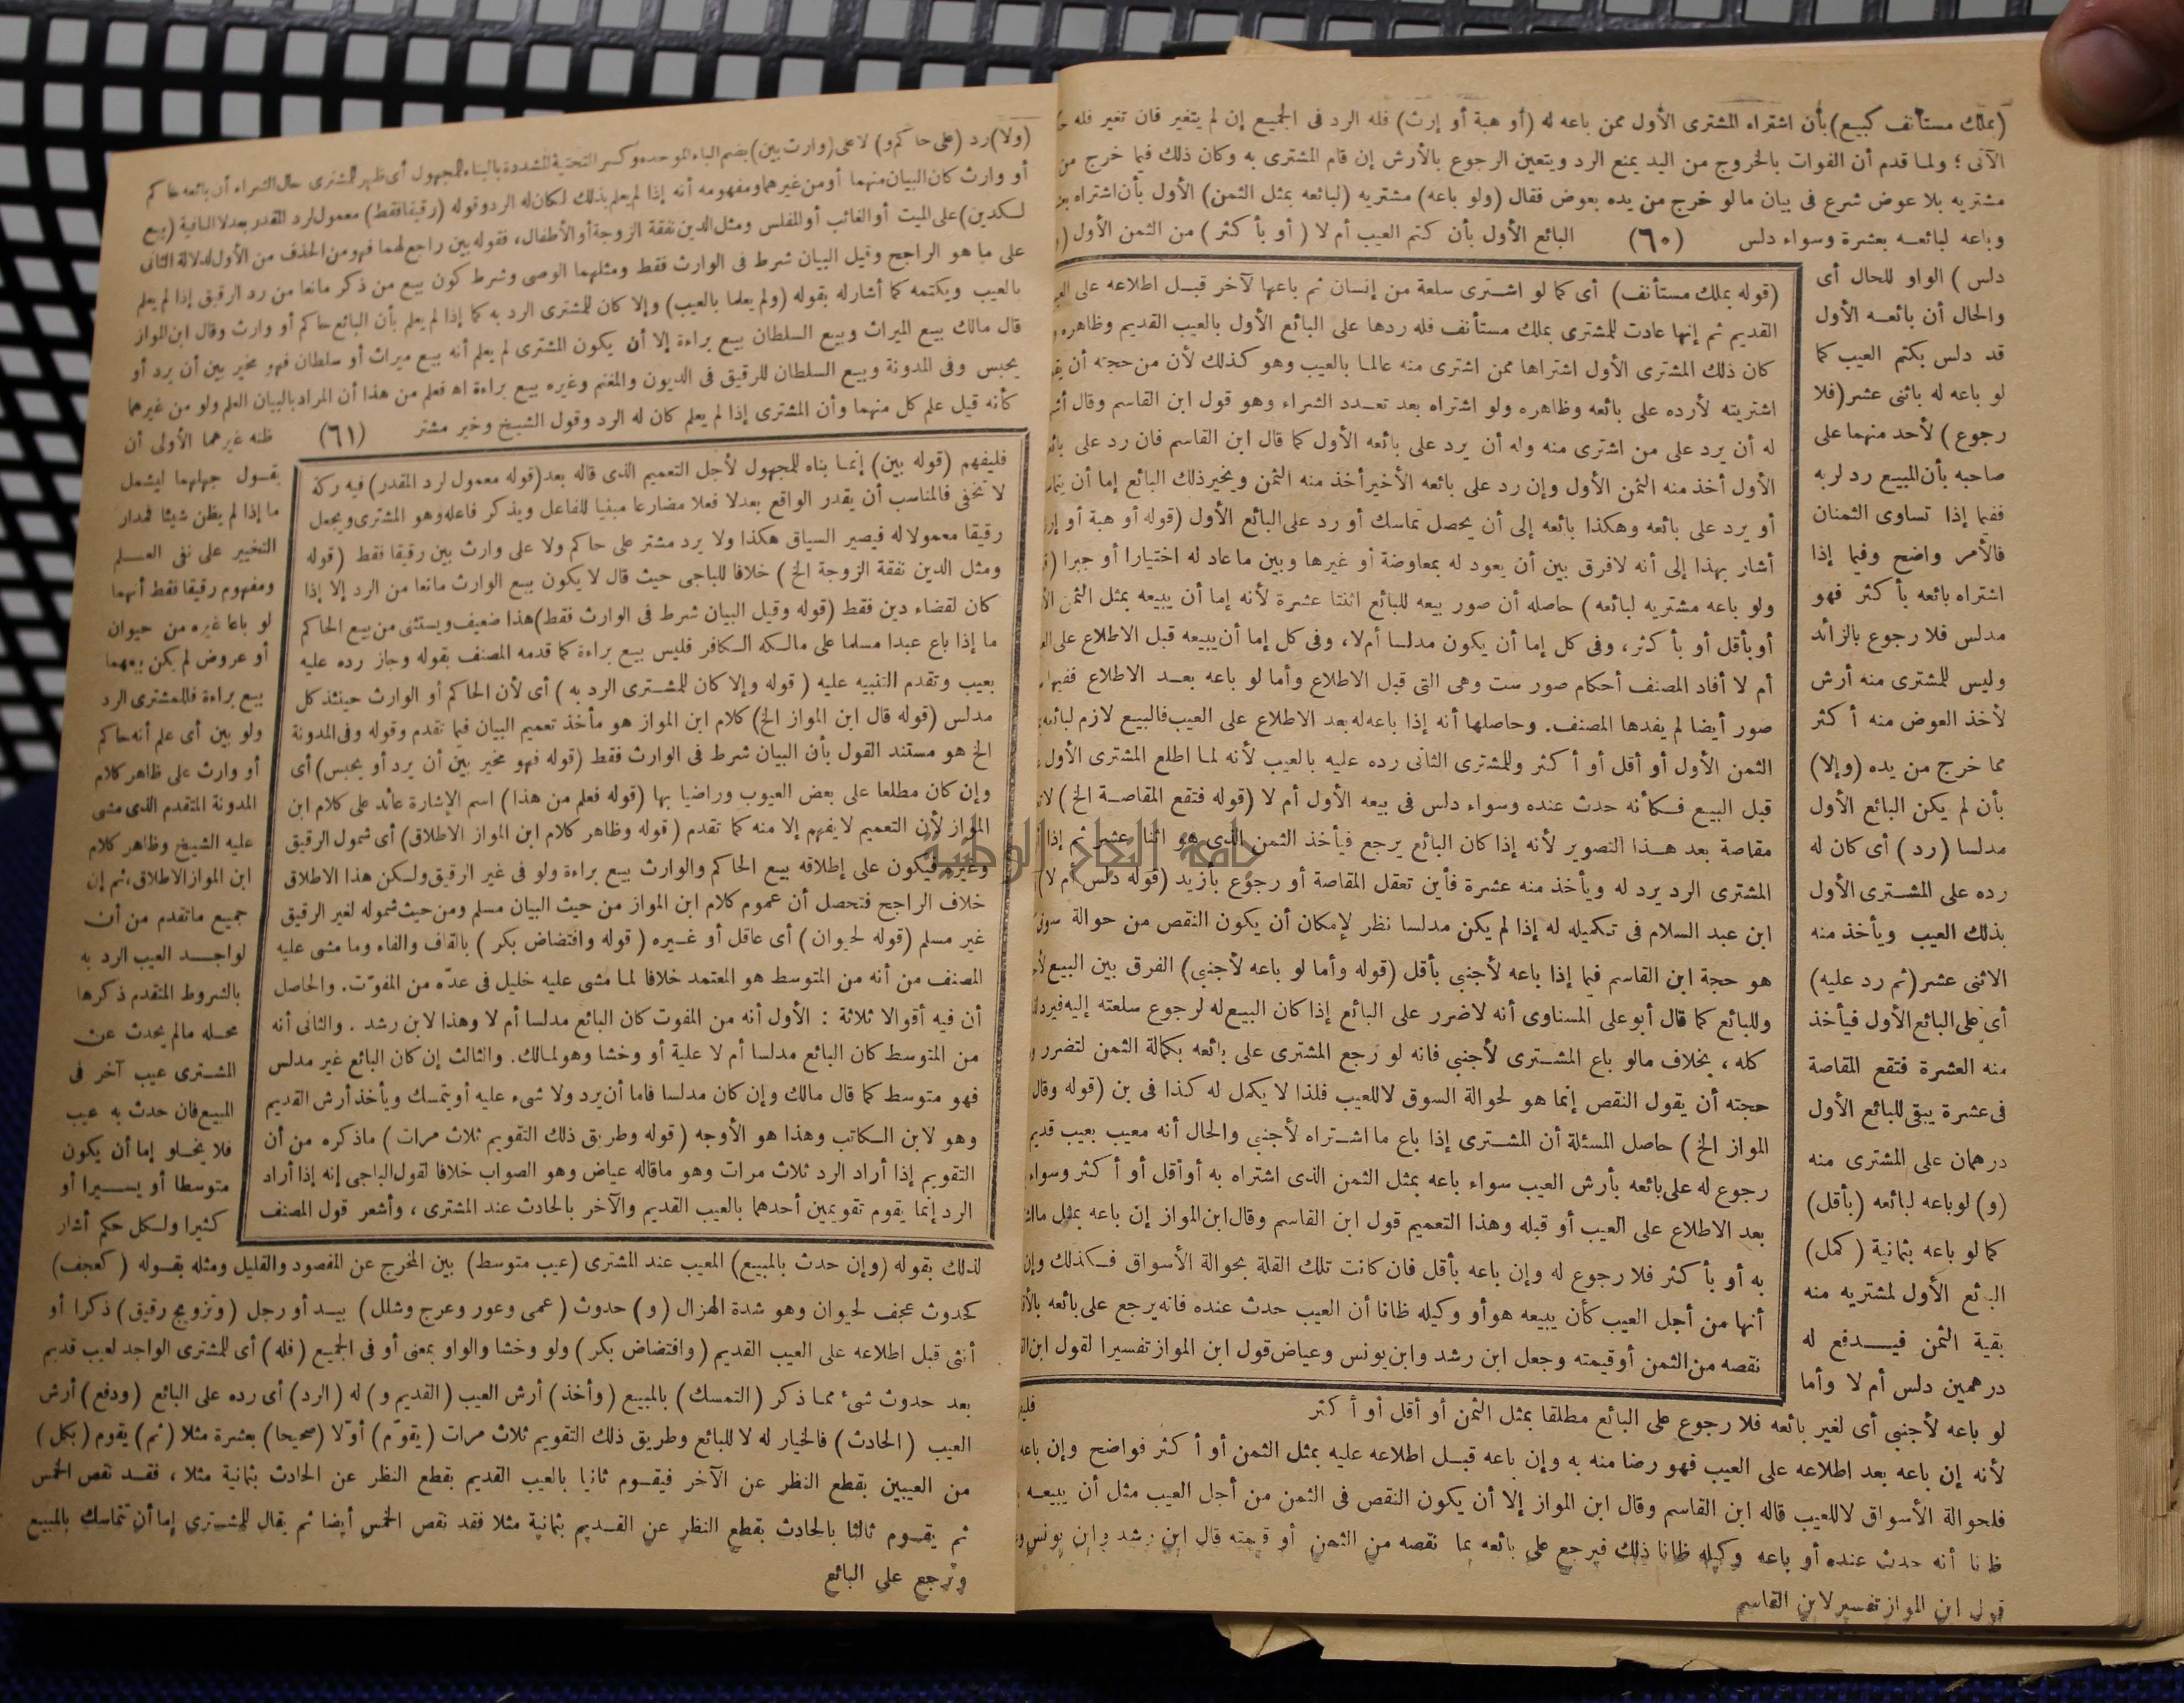 (بملك مستأنف كبيع) بأن اشتراه المشترى الأول ممن باعه له (أو هبة أو إرث) فله الرد فى الجميع إن لم يتغير فان تغير فله
الآنى ؛ ولما قدم أن الفوات بالخروج من اليد يمنع الرد ويتعين الرجوع بالأرش إن قام المشترى به وكان ذلك فيما خرج من
مشتريه بلا عوض شرع فى بيان ما لو خرج من يده بعوض فقال (ولو باعه) مشتريه (لبائعه بمثل الثمن) الأول بأن اشتراه
وباعه لبائعـه بعشرة وسواء دلس (٦٠) البائع الأول بأن كتم العيب أم لا (أو بأكثر) من الثمن الأول
دلس) الواو للحال أى
والحال أن بائعـه الأول
قد دلس بكتم العيب كما
لو باعه له باثنى عشر (فلا
رجوع) لأحد منهما على
صاحبه بأن المبيع رد لربه
ففيما إذا تساوى الثمنان
فالأمر واضح وفيما إذا
اشتراه بائعه بأكثر فهو
مدلس فلا رجوع بالزائد
وليس للمشترى منه أرش
لأخذ العوض منه أكثر
مما خرج من يده (وإلا)
بأن لم يكن البائع الأول
مدلسا (رد) أى كان له
رده على المشـترى الأول
بذلك العيب ويأخذ منه
الاثنى عشر (ثم رد عليه)
أى على البائع الأول فيأخذ
منه العشرة فتقع المقاصة
فى عشرة يبقى للبائع الأول
درهمان على المشترى منه
(و) لو باعه لبائعه (بأقل)
كما لو باعه بثمانية (كمل)
البائع الأول لمشتريه منه
بقية الثمن فيـدفع له
درهمين دلس أم لا وأما
(قوله بملك مستأنف) أى كما لو اشـترى سلعة من إنسان ثم باعها لآخر قبـل اطلاعه على
القديم ثم إنها عادت للمشترى بملك مستأنف فله ردها على البائع الأول بالعيب القديم وظاهره
كان ذلك المشترى الأول اشتراها ممن اشترى منه عالمـا بالعيب وهو كـذلك لأن من حجته أن
اشتريته لأرده على بائعه وظاهره ولو اشتراه بعد تعـدد الشراء وهو قول ابن القاسم وقال
له أن يرد على من اشترى منه وله أن يرد على بائعه الأول كما قال ابن القاسم فان رد على
الأول أخذ منه الثمن الأول وإن رد على بائعه الأخير أخذ منه الثمن ويخير ذلك البائع إما أن
أو يرد على بائعه وهكذا بائعه إلى أن يحصل تماسك أو رد على البائع الأول (قوله أو هبة أو
أشار بهذا إلى أنه لافرق بين أن يعود له بمعاوضة أو غيرها وبين ما عاد له اختيارا أو جبرا
ولو باعه مشتريه لبائعه) حاصله أن صور بيعه للبائع اثنتا عشرة لأنه إما أن يبيعه بمثل الثمن
أو بأقل أو بأكثر، وفى كل إما أن يكون مدلسا أم لا، وفى كل إما أن يبيعه قبل الاطلاع على
أم لا أفاد المصنف أحكام صور ست وهى التى قبل الاطلاع وأما لو باعه بعـد الاطلاع ففيها
صور أيضا لم يفدها المصنف. وحاصلها أنه إذا باعه له بعد الاطلاع على العيب فالبيع لازم لبائعه
الثمن الأول أو أقل أو أكثر وللمشترى الثانى رده عليه بالعيب لأنه لمـا اطلع المشترى الأول
قبل البيع فـكأنه حدث عنده وسواء دلس فى بيعه الأول أم لا (قوله فتقع المقاصـة الخ)
مقاصة بعد هـذا التصوير لأنه إذا كان البائع يرجع فيأخذ الثمن الذى هو اثنا عشر ثم إذا
المشترى الرد يرد له ويأخذ منه عشرة فأين تعقل المقاصة أو رجوع بأزيد (قوله دلس أم لا)
ابن عبد السلام فى تكميله له إذا لم يكن مدلسا نظر لإمكان أن يكون النقص من حوالة سوق
هو حجة ابن القاسم فيما إذا باعه لأجنبي بأقل (قوله وأما لو باعه لأجنبى) الفرق بين البيع
وللبائع كما قال أبو على المسناوى أنه لاضرر على البائع إذا كان البيع له لرجوع سلعته إليه
كله ، بخلاف مالو باع المشـترى لأجنبي فانه لو رجع المشترى على بائعه بكمالة الثمن لتضرر
حجته أن يقول النقص إنما هو لحوالة السوق لاللعيب فلذا لا يكمل له كذا فى بن (قوله وقال
المواز الخ) حاصل المسئلة أن المشـترى إذا باع ما اشـتراه لأجنبي والحال أنه معيب بعيب قديم
رجوع له على بائعه بأرش العيب سواء باعه بمثل الثمن الذى اشتراه به أو أقل أو أكثر وسواء
بعد الاطلاع على العيب أو قبله وهذا التعميم قول ابن القاسم وقال ابن المواز إن باعه بمثل
به أو بأكثر فلا رجوع له وإن باعه بأقل فان كانت تلك القلة بحوالة الأسواق فـكذلك وإن
أنها من أجل العيب كأن يبيعه هو أو وكيله ظانا أن العيب حدث عنده فانه يرجع على بائعه
نقصه من الثمن أو قيمته وجعل ابن رشد وابن يونس وعياض قول ابن المواز تفسيرا لقول
لو باعه لأجنبى أى لغير بائعه فلا رجوع على البائع مطلقا بمثل الثمن أو أقل أو أكثر
لأنه إن باعه بعد اطلاعه على العيب فهو رضا منه به وإن باعه قبـل اطلاعه عليه بمثل الثمن أو أكثر فواضح وإن باعه
فلحوالة الأسواق لاللعيب قاله ابن القاسم وقال ابن المواز إلا أن يكون النقص فى الثمن من أجل العيب مثل أن يبيعـه
ظانا أنه حدث عنده أو باعه وكيله ظانا ذلك فيرجع على بائعه بما نقصه من الثمن أو قيمته قال ابن رشد وابن يونس
قول ابن المواز تفسير لابن القاسم
(ولا) رد (على حاكم و) لا على (وارث بين) بضم الباء الموحدة وكسر التحتية المشددة بالبناء للمجهول أى ظهر للمشترى حال الشراء أن بائعه حاكم
أو وارث كان البيان منهما أو من غيرهما ومفهومه أنه إذا لم يعلم بذلك لكان له الرد وقوله (رقيقا فقط) معمول لرد المقدر بعد لا النافية (بيع
لـكدين) على الميت أو الغائب أو المفلس ومثل الدين نفقة الزوجة أو الأطفال، فقوله بين راجع لهما فهو من الحذف من الأول لدلالة الثانى
على ما هو الراجح وقيل البيان شرط فى الوارث فقط ومثلهما الوصى وشرط كون بيع من ذكر مانعا من رد الرقيق إذا لم يعلم
بالعيب ويكتمه كما أشار له بقوله (ولم يعلما بالعيب) وإلا كان للمشترى الرد به كما إذا لم يعلم بأن البائع حاكم أو وارث وقال ابن المواز
قال مالك بيع الميراث وبيع السلطان بيع براءة إلا أن يكون المشترى لم يعلم أنه بيع ميراث أو سلطان فهو مخير بين أن يرد أو
يحبس وفى المدونة وبيع السلطان للرقيق فى الديون والمغنم وغيره بيع براءة اه فعلم من هذا أن المراد بالبيان العلم ولو من غيرهما
كأنه قيل علم كل منهما وأن المشترى إذا لم يعلم كان له الرد وقول الشيخ وخير مشتر (٦١) ظنه غيرهما الأولى أن
يقـول جهلهما ليشمل
ما إذا لم يظن شيئا فمدار
التخيير على نفى العـلم
ومفهوم رقيقا فقط أنهما
لو باعا غيره من حيوان
أو عروض لم يكن بيعهما
بيع براءة فللمشترى الرد
ولو بين أى علم أنه حاكم
أو وارث على ظاهر كلام
المدونة المتقدم الذى مشى
عليه الشيخ وظاهر كلام
ابن المواز الاطلاق، ثم إن
جميع ماتقدم من أن
لواجـد العيب الرد به
بالشروط المتقدم ذكرها
محـله مالم يحدث عن
المشـترى عيب آخر فى
المبيع فان حدث به عيب
فلا يخـلو إما أن يكون
متوسطا أو يسـيرا أو
كثيرا ولـكل حكم أشار
فليفهم (قوله بين) إنمـا بناه للمجهول لأجل التعميم الذى قاله بعد (قوله معمول لرد المقدر) فيه ركة
لا تخفى فالمناسب أن يقدر الواقع بعد لا فعلا مضارعا مبنيا للفاعل ويذكر فاعله وهو المشترى ويجعل
رقيقا معمولا له فيصير السياق هكذا ولا يرد مشتر على حاكم ولا على وارث بين رقيقا فقط (قوله
ومثل الدين نفقة الزوجة الخ) خلافا للباجى حيث قال لا يكون بيع الوارث مانعا من الرد إلا إذا
كان لقضاء دين فقط (قوله وقيل البيان شرط فى الوارث فقط) هذا ضعيف ويستثنى من بيع الحاكم
ما إذا باع عبدا مسلما على مالـكه الـكافر فليس بيع براءة كما قدمه المصنف بقوله وجاز رده عليه
بعيب وتقدم التنبيه عليه (قوله وإلا كان للمشـترى الرد به) أى لأن الحاكم أو الوارث حينئذ كل
مدلس (قوله قال ابن المواز الخ) كلام ابن المواز هو مأخذ تعميم البيان فيما تقدم وقوله وفى المدونة
الخ هو مستند القول بأن البيان شرط فى الوارث فقط (قوله فهو مخير بين أن يرد أو يحبس) أى
وإن كان مطلعا على بعض العيوب وراضيا بها (قوله فعلم من هذا) اسم الإشارة عائد على كلام ابن
المواز لأن التعميم لا يفهم إلا منه كما تقدم (قوله وظاهر كلام ابن المواز الاطلاق) أى شمول الرقيق
وغيره فيكون على إطلاقه بيع الحاكم والوارث بيع براءة ولو فى غير الرقيق ولـكن هذا الاطلاق
خلاف الراجح فتحصل أن عموم كلام ابن المواز من حيث البيان مسلم ومن حيث شموله لغير الرقيق
غير مسلم (قوله لحيوان) أى عاقل أو غـيره (قوله وافتضاض بكر) بالقاف والفاء وما مشى عليه
المصنف من أنه من المتوسط هو المعتمد خلافا لمـا مشى عليه خليل فى عدّه من المفوّت. والحاصل
أن فيه أقوالا ثلاثة : الأول أنه من المفوت كان البائع مدلسا أم لا وهذا لابن رشد . والثانى أنه
من المتوسط كان البائع مدلسا أم لا علية أو وخشا وهو لمالك. والثالث إن كان البائع غير مدلس
فهو متوسط كما قال مالك وإن كان مدلسا فاما أن يرد ولا شىء عليه أو يتمسك ويأخذ أرش القديم
وهو لابن الـكاتب وهذا هو الأوجه (قوله وطريق ذلك التقويم ثلاث مرات) ماذكره من أن
التقويم إذا أراد الرد ثلاث مرات وهو ماقاله عياض وهو الصواب خلافا لقول الباجى إنه إذا أراد
الرد إنما يقوم تقويمين أحدهما بالعيب القديم والآخر بالحادث عند المشترى ، وأشعر قول المصنف
لذلك بقوله (وإن حدث بالمبيع) المعيب عند المشترى (عيب متوسط) بين المخرج عن المقصود والقليل ومثله بقـوله (كعجف)
كحدوث عجف لحيوان وهو شدة الهزال (و) حدوث (عمى وعور وعرج وشلل) بيـد أو رجل (وتزويج رقيق) ذكرا أو
أنثى قبل اطلاعه على العيب القديم (وافتضاض بكر) ولو وخشا والواو بمعنى أو فى الجميع (فله) أى للمشترى الواجد لعيب قديم
بعد حدوث شىء ممـا ذكر (التمسك) بالمبيع (وأخذ) أرش العيب (القديم و) له (الرد) أى رده على البائع (ودفع) أرش
العيب (الحادث) فالخيار له لا للبائع وطريق ذلك التقويم ثلاث مرات (يقوّم) أوّلا (صحيحا) بعشرة مثلا (ثم) يقوم (بكل)
من العيبين بقطع النظر عن الآخر فيقـوم ثانيا بالعيب القديم بقطع النظر عن الحادث بثمانية مثلا ، فقـد نقص الخمس
ثم يقـوم ثالثا بالحادث بقطع النظر عن القـديم بثمانية مثلا فقد نقص الخمس أيضا ثم يقال للمشترى إما أن تتماسك بالمبيع
وترجع على البائع
جامعة النجاح الوطنية